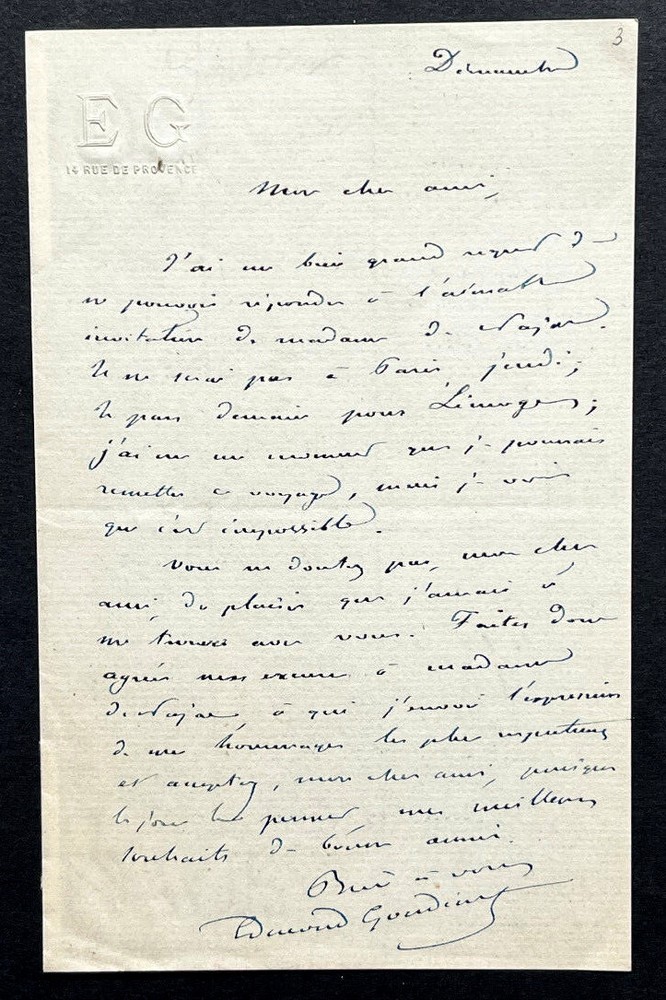 3
Dimanche
EG
14 RUE DE PROVENCE
Mon cher ami,
J'ai un bien grand regret de
ne pouvoir répondre à l'aimable
invitation de madame de Najac.
Je ne serai pas à Paris jeudi ;
Je pars demain pour Limoges ;
j'ai cru un moment que je pourrais
remettre ce voyage, mais je vois
que c'est impossible.
Vous ne doutez pas, mon cher
ami, du plaisir que j'aurais à
me trouver avec vous. Faites donc
agréer mes excuses à madame
de Najac à qui j'envoie l'expression
de mes hommages les plus respectueux
et acceptez, mon cher ami, puisque
le jour le permet, mes meilleurs
souhaits de bonne année.
Bien à vous
Edmond Gondinet